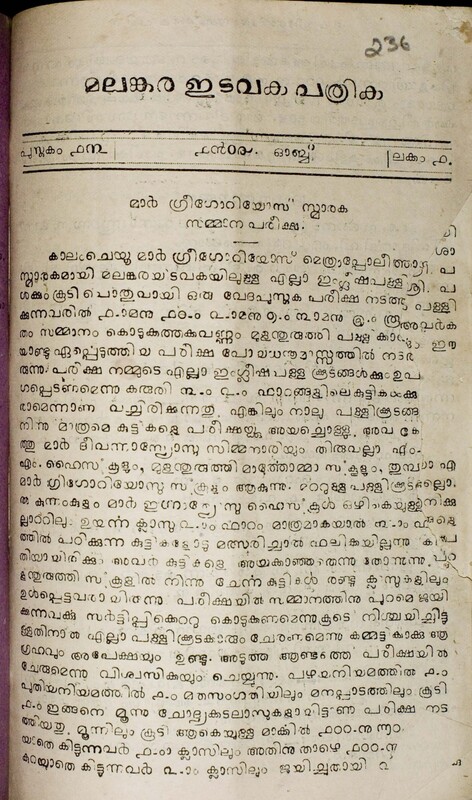 236
മലങ്കര ഇടവക പത്രിക
പുസ്തകം ൧൩
ലക്കം ൧.
മാർ ഗ്രീഗോറിയോസ് സ്മാരക
സമ്മാന പരീക്ഷ.
കാലംചെയ്ത മാർ ഗ്രീഗോറിയോസ് മെത്രാപ്പോലീത്തായുടെ
സ്മാരകമായി മലങ്കരയിടവകയിലുള്ള എല്ലാ ഇംഗ്ലീഷപള്ളി
ൾക്കുംകൂടി പൊതുവായി ഒരു വേദപുസ്തക പരീക്ഷ നടത്തു
ക്കുന്നവരിൽ
തം സമ്മാനം കൊടുക്കത്തക്കവണ്ണം മുളന്തുരുത്തി പള്ളിക്കാരാൽ ഈ
യാണ്ടു ഏപ്പെടുത്തിയ പരീക്ഷ
രുന്നു. പരീക്ഷ നമ്മുടെ എല്ലാ ഇംഗ്ലീഷ പള്ളി കൂടങ്ങൾക്കും ഉപ
ഗപ്പെടണമെന്നു കരുതി ൩-ാം ൨-ാം ഫാറങ്ങളിലെ കുട്ടികൾക്കു
രാമെന്നാണ വച്ചിരിക്കുന്നതു. എങ്കിലും നാലു പള്ളിക്കൂടങ്ങ
നിന്നു മാത്രമെ കുട്ടികളെ പരീക്ഷയ്ക്കു അയച്ചൊള്ളു. അവ കോ
ത്തു മാർ ദീവന്നാസ്യോസു സിമ്മനാരിയും തിരുവല്ലാ എം.
എം. ഹൈസ്കൂളും, മുളന്തുരുത്തി മാർത്തോമ്മാ സ്കൂളും, തുമ്പമ
മാർ ഗ്രിഗോറിയോസു സ്കൂളും ആകുന്നു. മറ്റുള്ള പള്ളിക്കൂടങ്ങളെല്ലാം
ൽ കുന്നംകുളം മാർ ഇഗ്നാത്യോസു ഹൈസ്കൂൾ ഒഴികെയുള്ളതിനു
ല്ലാറ്റിലും. ഉയർന്ന ക്ലാസു ൨-ാം ഫാറം മാത്രമാകയാൽ ൩-ാം ഫാറ
ത്തിൽ പഠിക്കുന്ന കുട്ടികളോടു മത്സരിച്ചാൽ ഫലിക്കയില്ലന്നു
തിയായിരിക്കും അവർ കുട്ടികളെ അയക്കാഞ്ഞതെന്നു തോന്നുന്നു.
ളന്തുരുത്തി സ്കൂളിൽ നിന്നു ചേർന്ന കുട്ടികൾ രണ്ടു ക്ലാസുകളിലും
ഉൾപ്പെട്ടവരായിരുന്നു. പരീക്ഷയിൽ സമ്മാനത്തിനു പുറമെ ജയി
ക്കുന്നവൎക്കു സർട്ടിപ്പിക്കെററു കൊടുക്കണമെന്നുകൂടെ നിശ്ചയിച്ചിട്ടു
ള്ളതിനാൽ എല്ലാ പള്ളിക്കൂടകാരും ചേരണമെന്നു കമ്മട്ടിക്കാൎക്കു ആ
ഗ്രഹവും അപേക്ഷയും ഉണ്ടു. അടുത്ത ആണ്ടത്തെ പരീക്ഷയിൽ
ചേരുമെന്നു വിശ്വസിക്കയും ചെയ്യുന്നു. പഴയനിയമത്തിൽ ൧-ം
പുതിയനിയമത്തിൽ ൧-ം മതസംഗതിയിലും മനപ്പാഠത്തിലും കൂടി
൧-ം ഇങ്ങനെ മൂന്നു ചോദ്യക്കടലാസുകളായിട്ടാണ പരീക്ഷ നട
ത്തിയതു. മൂന്നിലും കൂടി ആകെയുള്ള മാർക്കിൽ ൧൦൦-നു
യാതെ കിട്ടുന്നവർ ൧-ാം ക്ലാസിലും അതിനു താഴെ ൧൦൦-നു
കുറയാതെ കിട്ടുന്നവർ ൨-ാം ക്ലാസിലും ജയിച്ചതായി